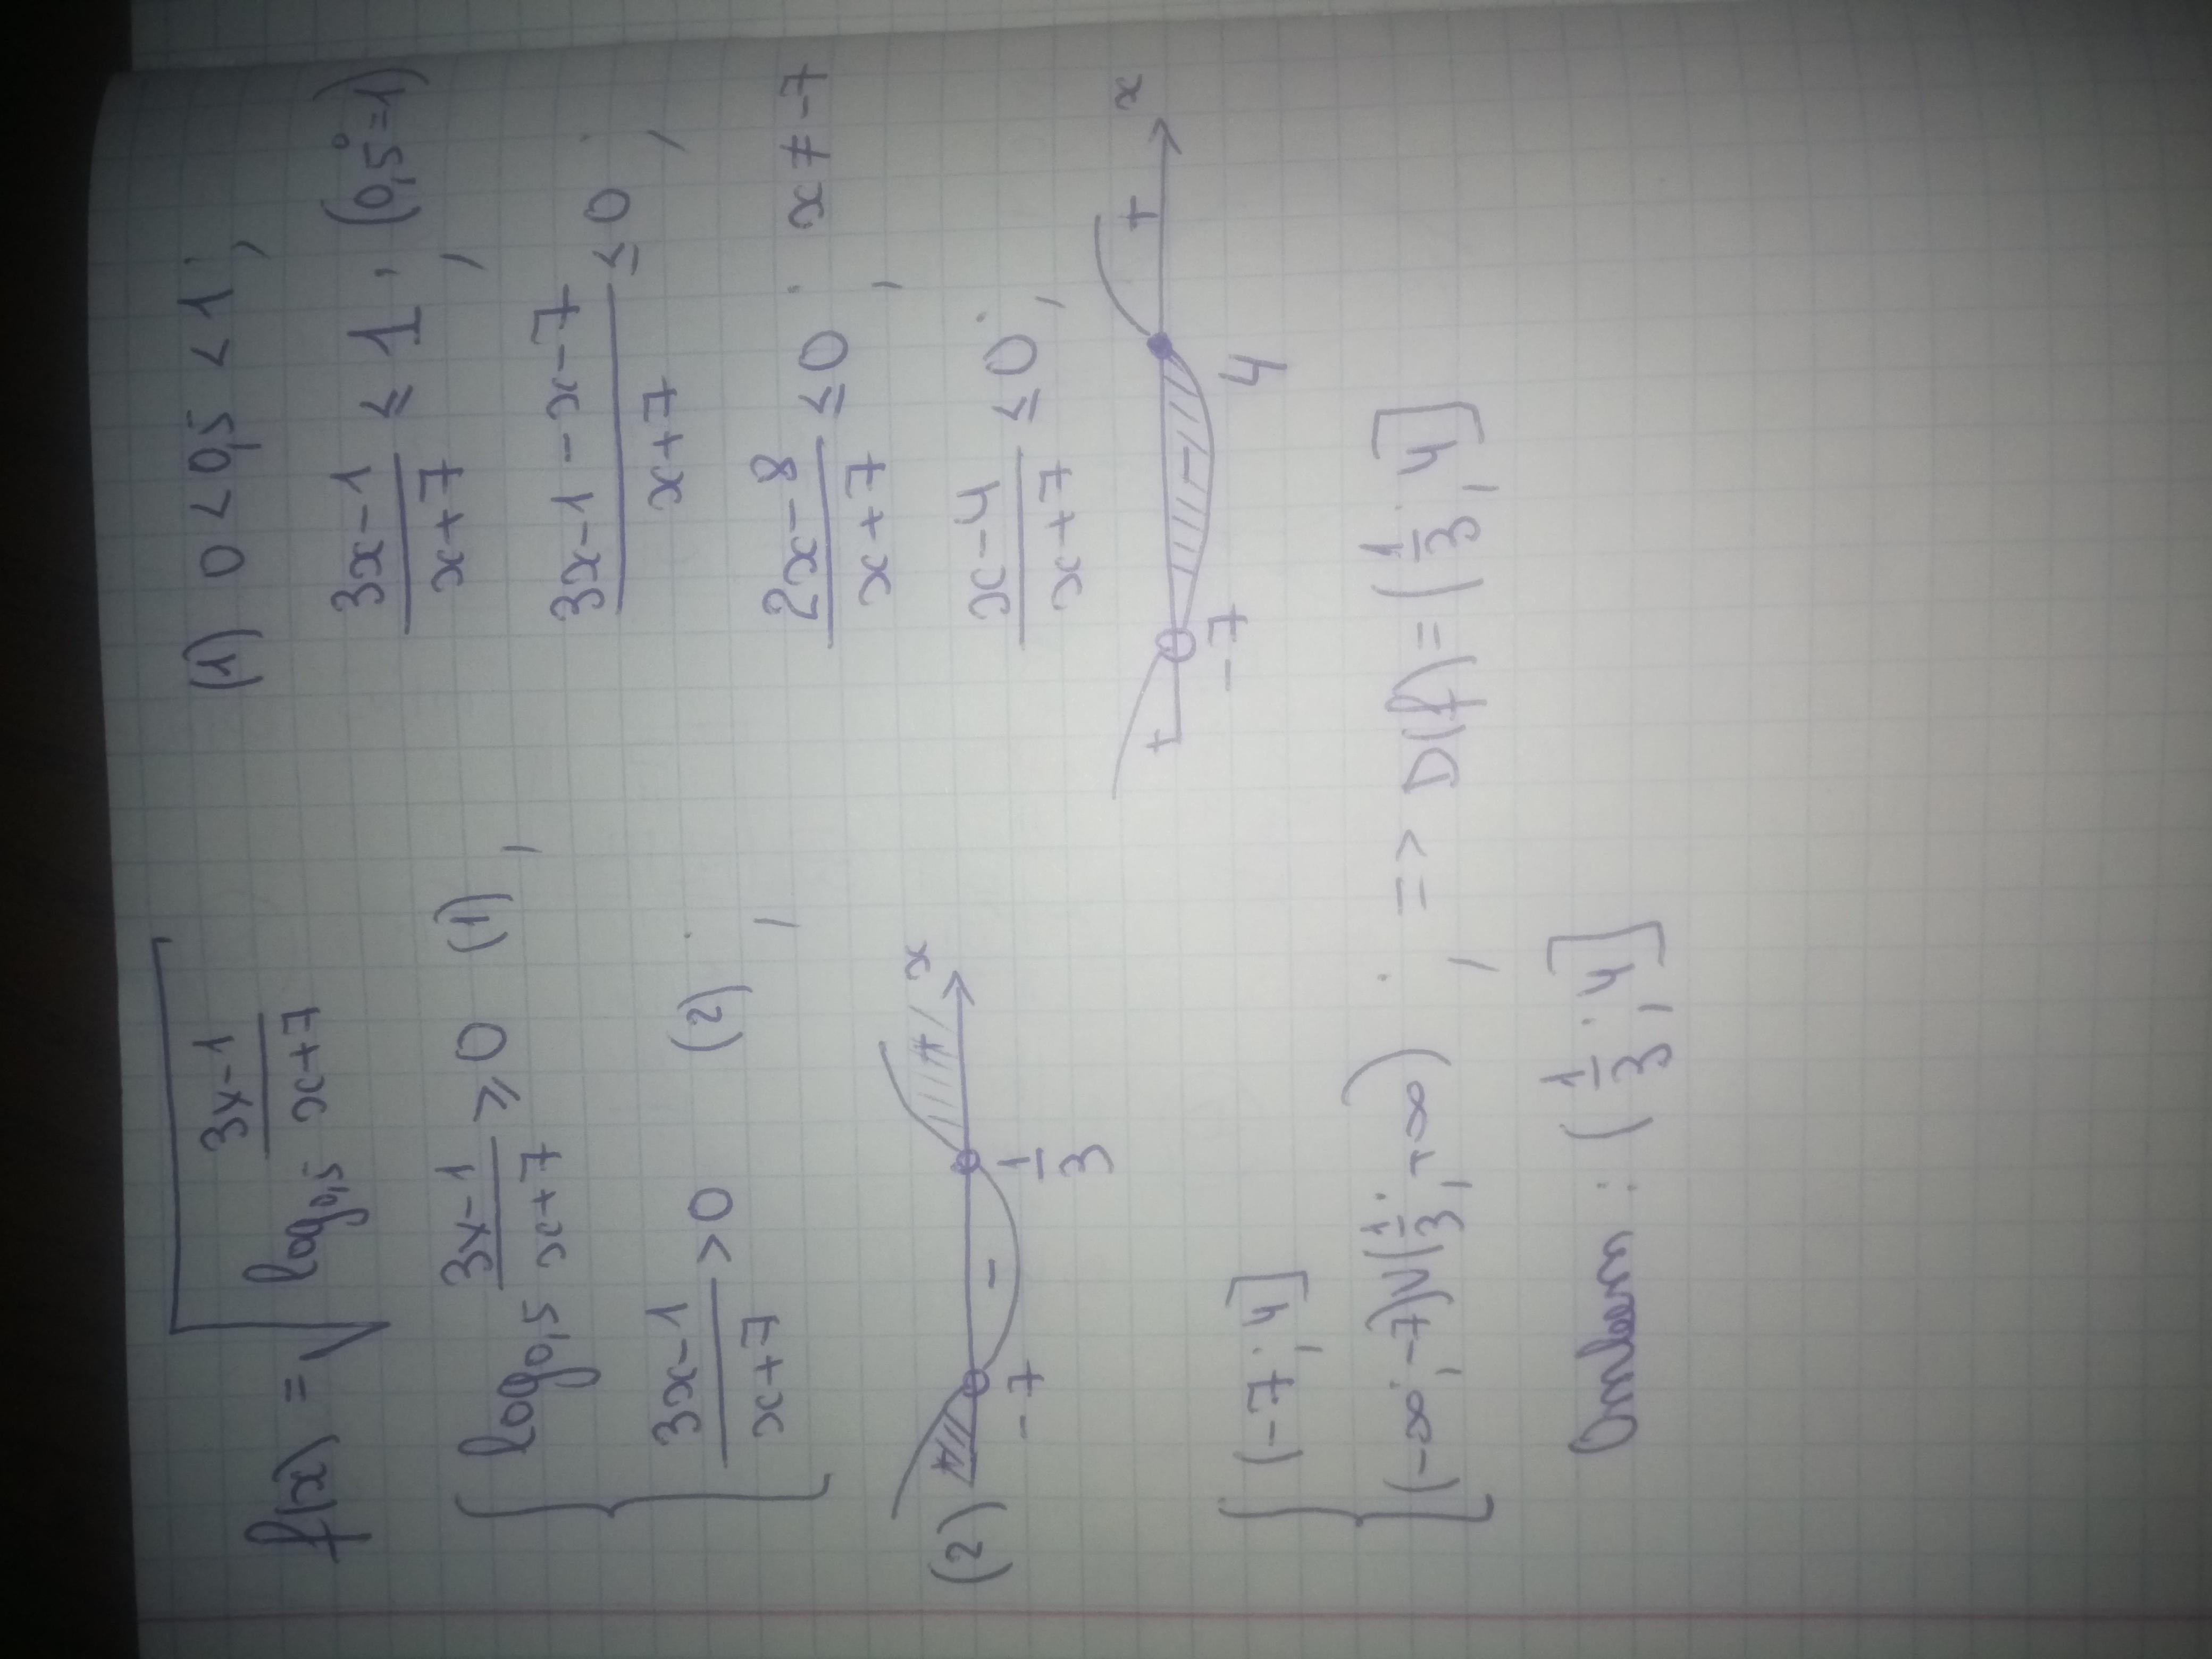 f(x) = √(log₀,₅ (3x-1)/(x+7))
{ log₀,₅ (3x-1)/(x+7) ≥ 0 (1),
(3x-1)/(x+7) > 0 (2) ;
(2) + - + x
-7 1/3
(1) 0 < 0,5 < 1 ;
(3x-1)/(x+7) ≤ 1 ; (0,5⁰=1)
(3x-1-x-7)/(x+7) ≤ 0 ;
(2x-8)/(x+7) ≤ 0 ; x ≠ -7
(x-4)/(x+7) ≤ 0 ;
+ - + x
-7 4
{ (-7 ; 4]
(-∞ ; -7)∪(1/3 ; +∞) ; => D(f) = (1/3 ; 4]
Ответ : (1/3 ; 4]